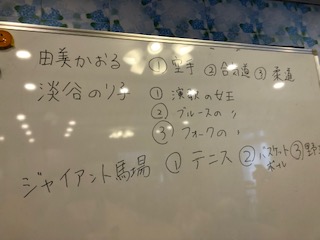 由美かおる ①空手 ②合気道 ③柔道
淡谷のり子 ①演歌の女王
②ブルースの 〃
③フォークの 〃
ジャイアント馬場 ①テニス ②バスケットボール ③野